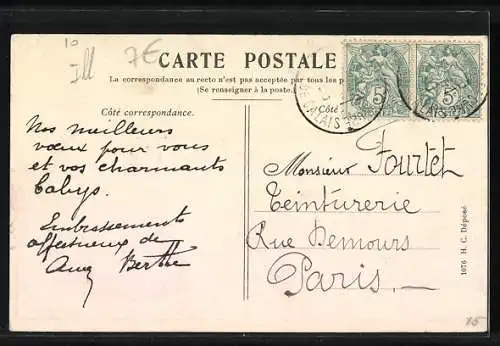 10
Ill
7€
CARTE POSTALE
La correspondance au recto n'est pas acceptée par tous les
(Se renseigner à la poste.)
Côté correspondance.
Côté
5
5
CALAIS
CALAIS
Nos meilleurs
vœux pour vous
et vos charmants
babys.
Embrassements
affectueux de
Berthe
Monsieur Fourtet
Teinturerie
Rue Demours
Paris.
1076 H. C. Déposé
75